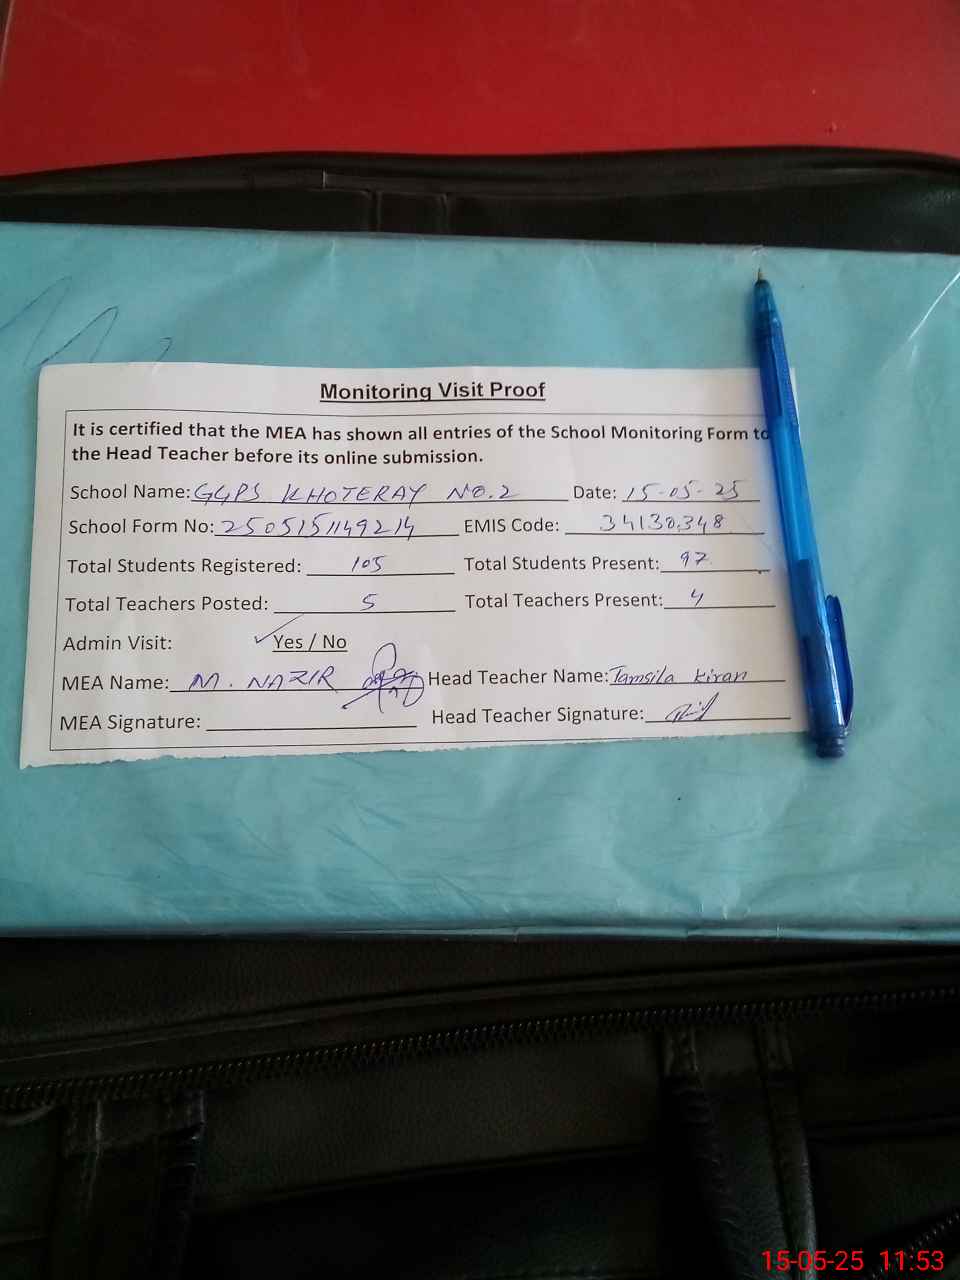 Monitoring Visit Proof
It is certified that the MEA has shown all entries of the School Monitoring Form to
the Head Teacher before its online submission.
School Name: GGPS KHOTERAY NO.2 Date: 15-05-25
School Form No: 2505151149214 EMIS Code: 34130348
Total Students Registered: 105 Total Students Present: 97
Total Teachers Posted: 5 Total Teachers Present: 4
Admin Visit: Yes / No
MEA Name: M. NAZIR Head Teacher Name: Tamsila Kiran
MEA Signature: Head Teacher Signature:
15-05-25 11:53